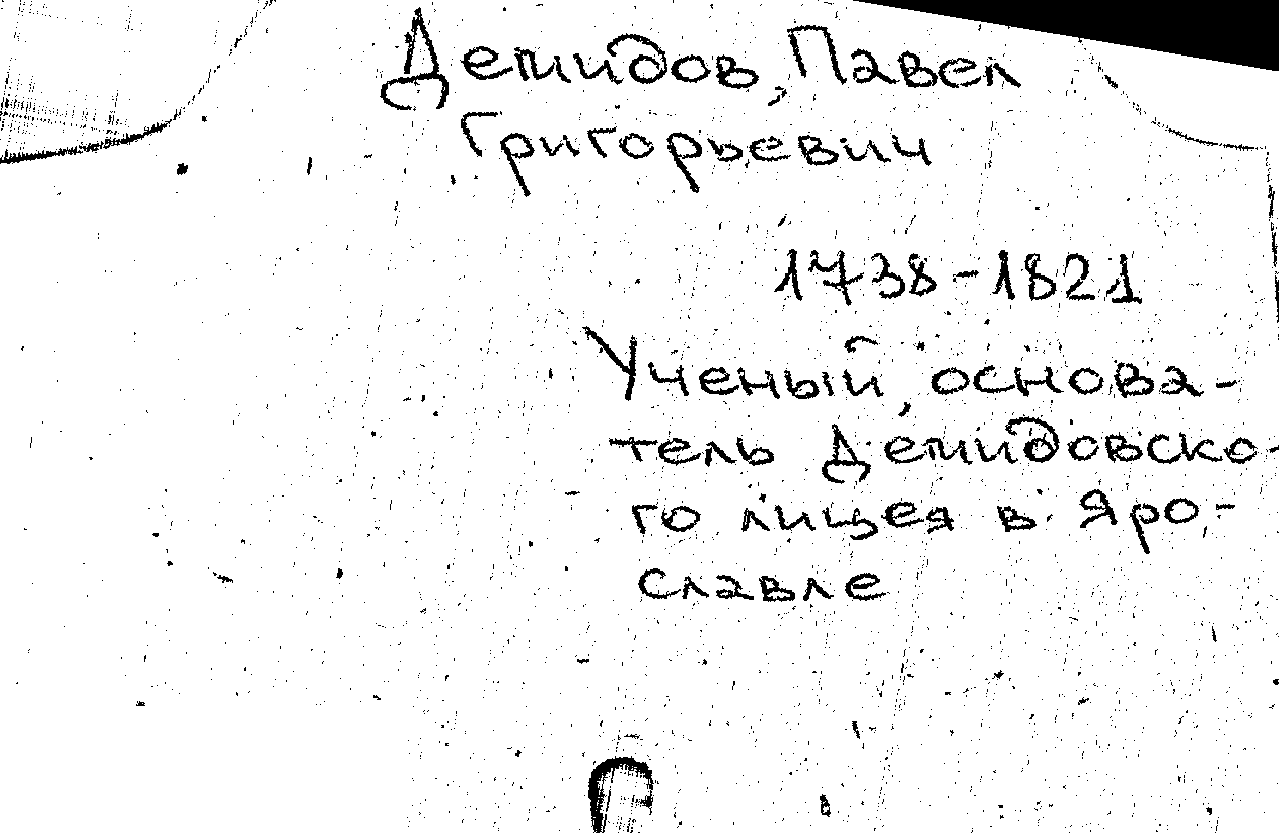 Демидов, Павел
Григорьевич
1738-1821
Ученый, основа-
тель Демидовско-
го лицея в Яро-
славле